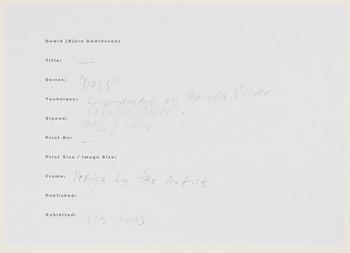 Dawid (Björn Dawidsson)
Title: —
Series: "DOTS"
Technique: on Bergla Silver
paper.
Signed: 1992 /
Print No: —
Print Size / Image Size:
Frame: Design by the Artist
Published:
Exhibited: 213 Paris